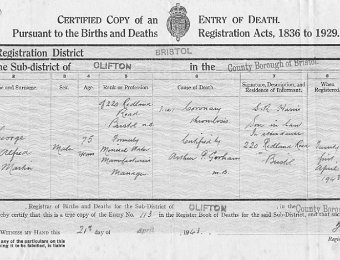 CERTIFIED COPY of an ENTRY OF DEATH.
Pursuant to the Births and Deaths Registration Acts, 1836 to 1929.
Registration District BRISTOL
the Sub-district of CLIFTON in the County Borough of Bristol
2 3 4 5 6 7 8
and Surname. Sex. Age. Rank or Profession Cause of Death. Signature, Description, and Residence of Informant. When Registered.
George Alfred Martin
Male
75 years
of 220 Redland Road Bristol
Formerly Mineral Water Manufacturers Manager
Coronary thrombosis
Certified by
Gorham
M.B.
Son in law
In attendance
220 Redland Road
Bristol
Twenty first April
Registrar of Births and Deaths for the Sub-District of CLIFTON in the County Borough
hereby certify that this is a true copy of the Entry No. 113 in the Register Book of Deaths for the said Sub-District, and that
WITNESS MY HAND this 21st day of April 1943.
any of the particulars on this
it to be falsified, is liable